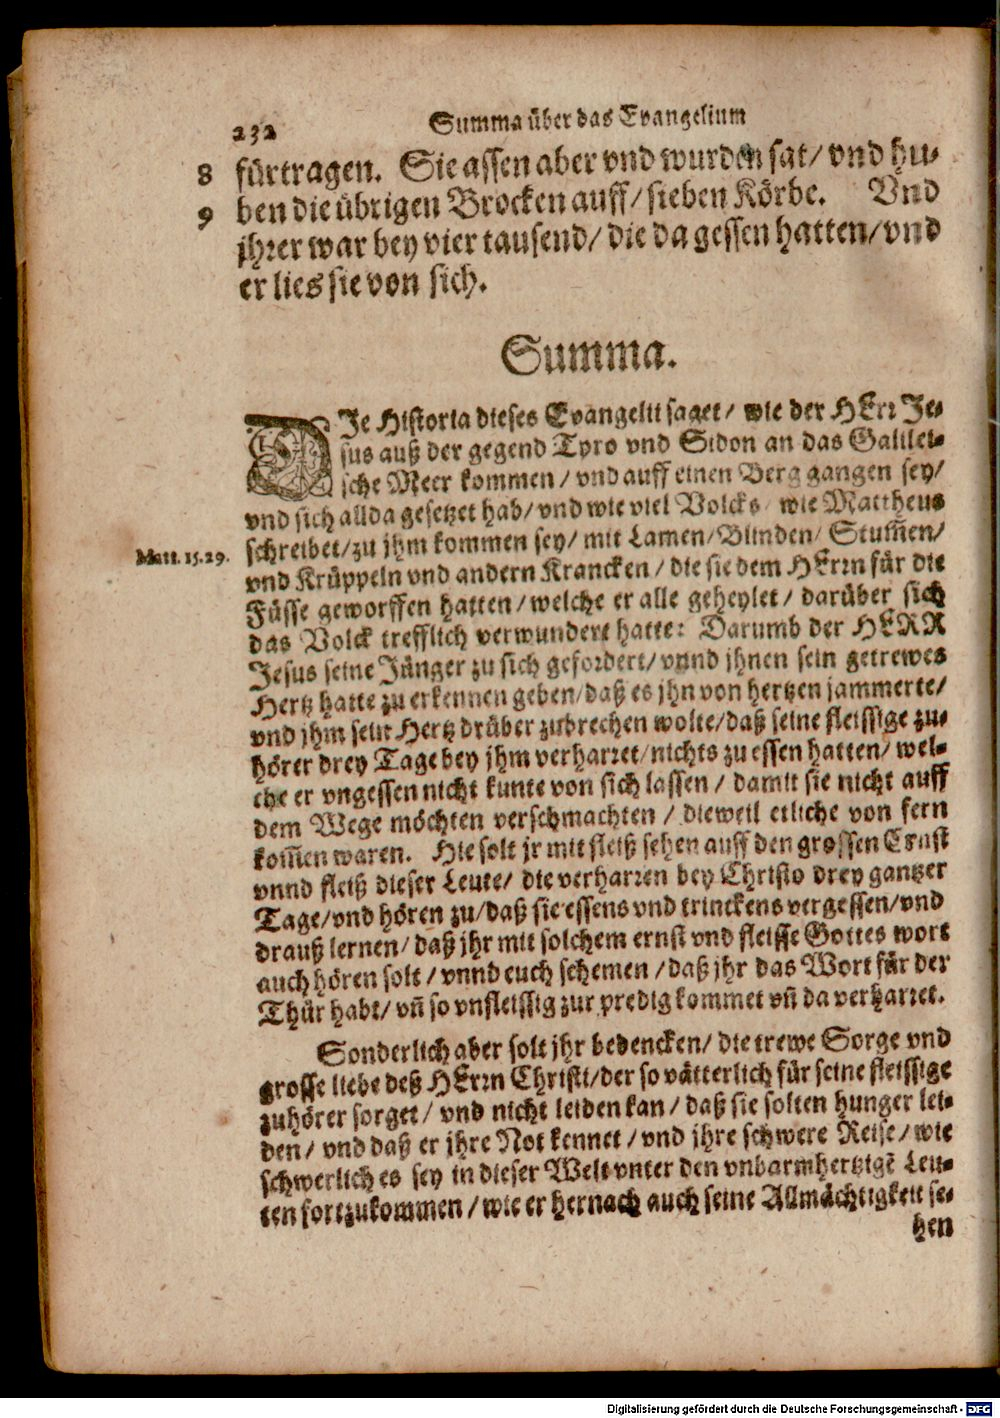 232 Summa über das Evangelium
8 fürtragen. Sie assen aber vnd wurden sat/ vnd hu-
9 ben die übrigen Brocken auff/ sieben Körbe. Vnd
jhrer war bey vier tausend/ die da gessen hatten/ vnd
er lies sie von sich.
Summa.
DJe Historia dieses Evangelii saget/ wie der HErr Je-
sus auß der gegend Tyro vnd Sidon an das Galilei-
sche Meer kommen/ vnd auff einen Berg gangen sey/
vnd sich allda gesetzet hab/ vnd wie viel Volcks/ wie Mattheus
Matt. 15.29. schreibet/ zu jhm kommen sey/ mit Lamen/ Blinden/ Stum̃en/
vnd Krüppeln vnd andern Krancken/ die sie dem HErrn für die
Füsse geworffen hatten/ welche er alle geheylet/ darüber sich
das Volck trefflich verwundert hatte: Darumb der HERR
Jesus seine Jünger zu sich gefordert/ vnnd jhnen sein getrewes
Hertz hatte zu erkennen geben/ daß es jhn von hertzen jammerte/
vnd jhm sein Hertz drüber zubrechen wolte/ daß seine fleissige zu-
hörer drey Tage bey jhm verharret/ nichts zu essen hatten/ wel-
che er vngessen nicht kunte von sich lassen/ damit sie nicht auff
dem Wege möchten verschmachten/ dieweil etliche von fern
kom̃en waren. Hie solt jr mit fleiß sehen auff den grossen Ernst
vnnd fleiß dieser Leute/ die verharren bey Christo drey gantzer
Tage/ vnd hören zu/ daß sie essens vnd trinckens vergessen/ vnd
drauß lernen/ daß jhr mit solchem ernst vnd fleisse Gottes wort
auch hören solt/ vnnd euch schemen/ daß jhr das Wort für der
Thür habt/ vñ so vnfleissig zur predig kommet vñ da verharret.
Sonderlich aber solt jhr bedencken/ die trewe Sorge vnd
grosse liebe deß HErrn Christi/ der so vätterlich für seine fleissige
zuhörer sorget/ vnd nicht leiden kan/ daß sie solten hunger lei-
den/ vnd daß er jhre Not kennet/ vnd jhre schwere Reise/ wie
schwerlich es sey in dieser Welt vnter den vnbarmhertzigẽ Leu-
ten fortzukommen/ wie er hernach auch seine Allmächtigkeit se-
hen
Digitalisierung gefördert durch die Deutsche Forschungsgemeinschaft - DFG